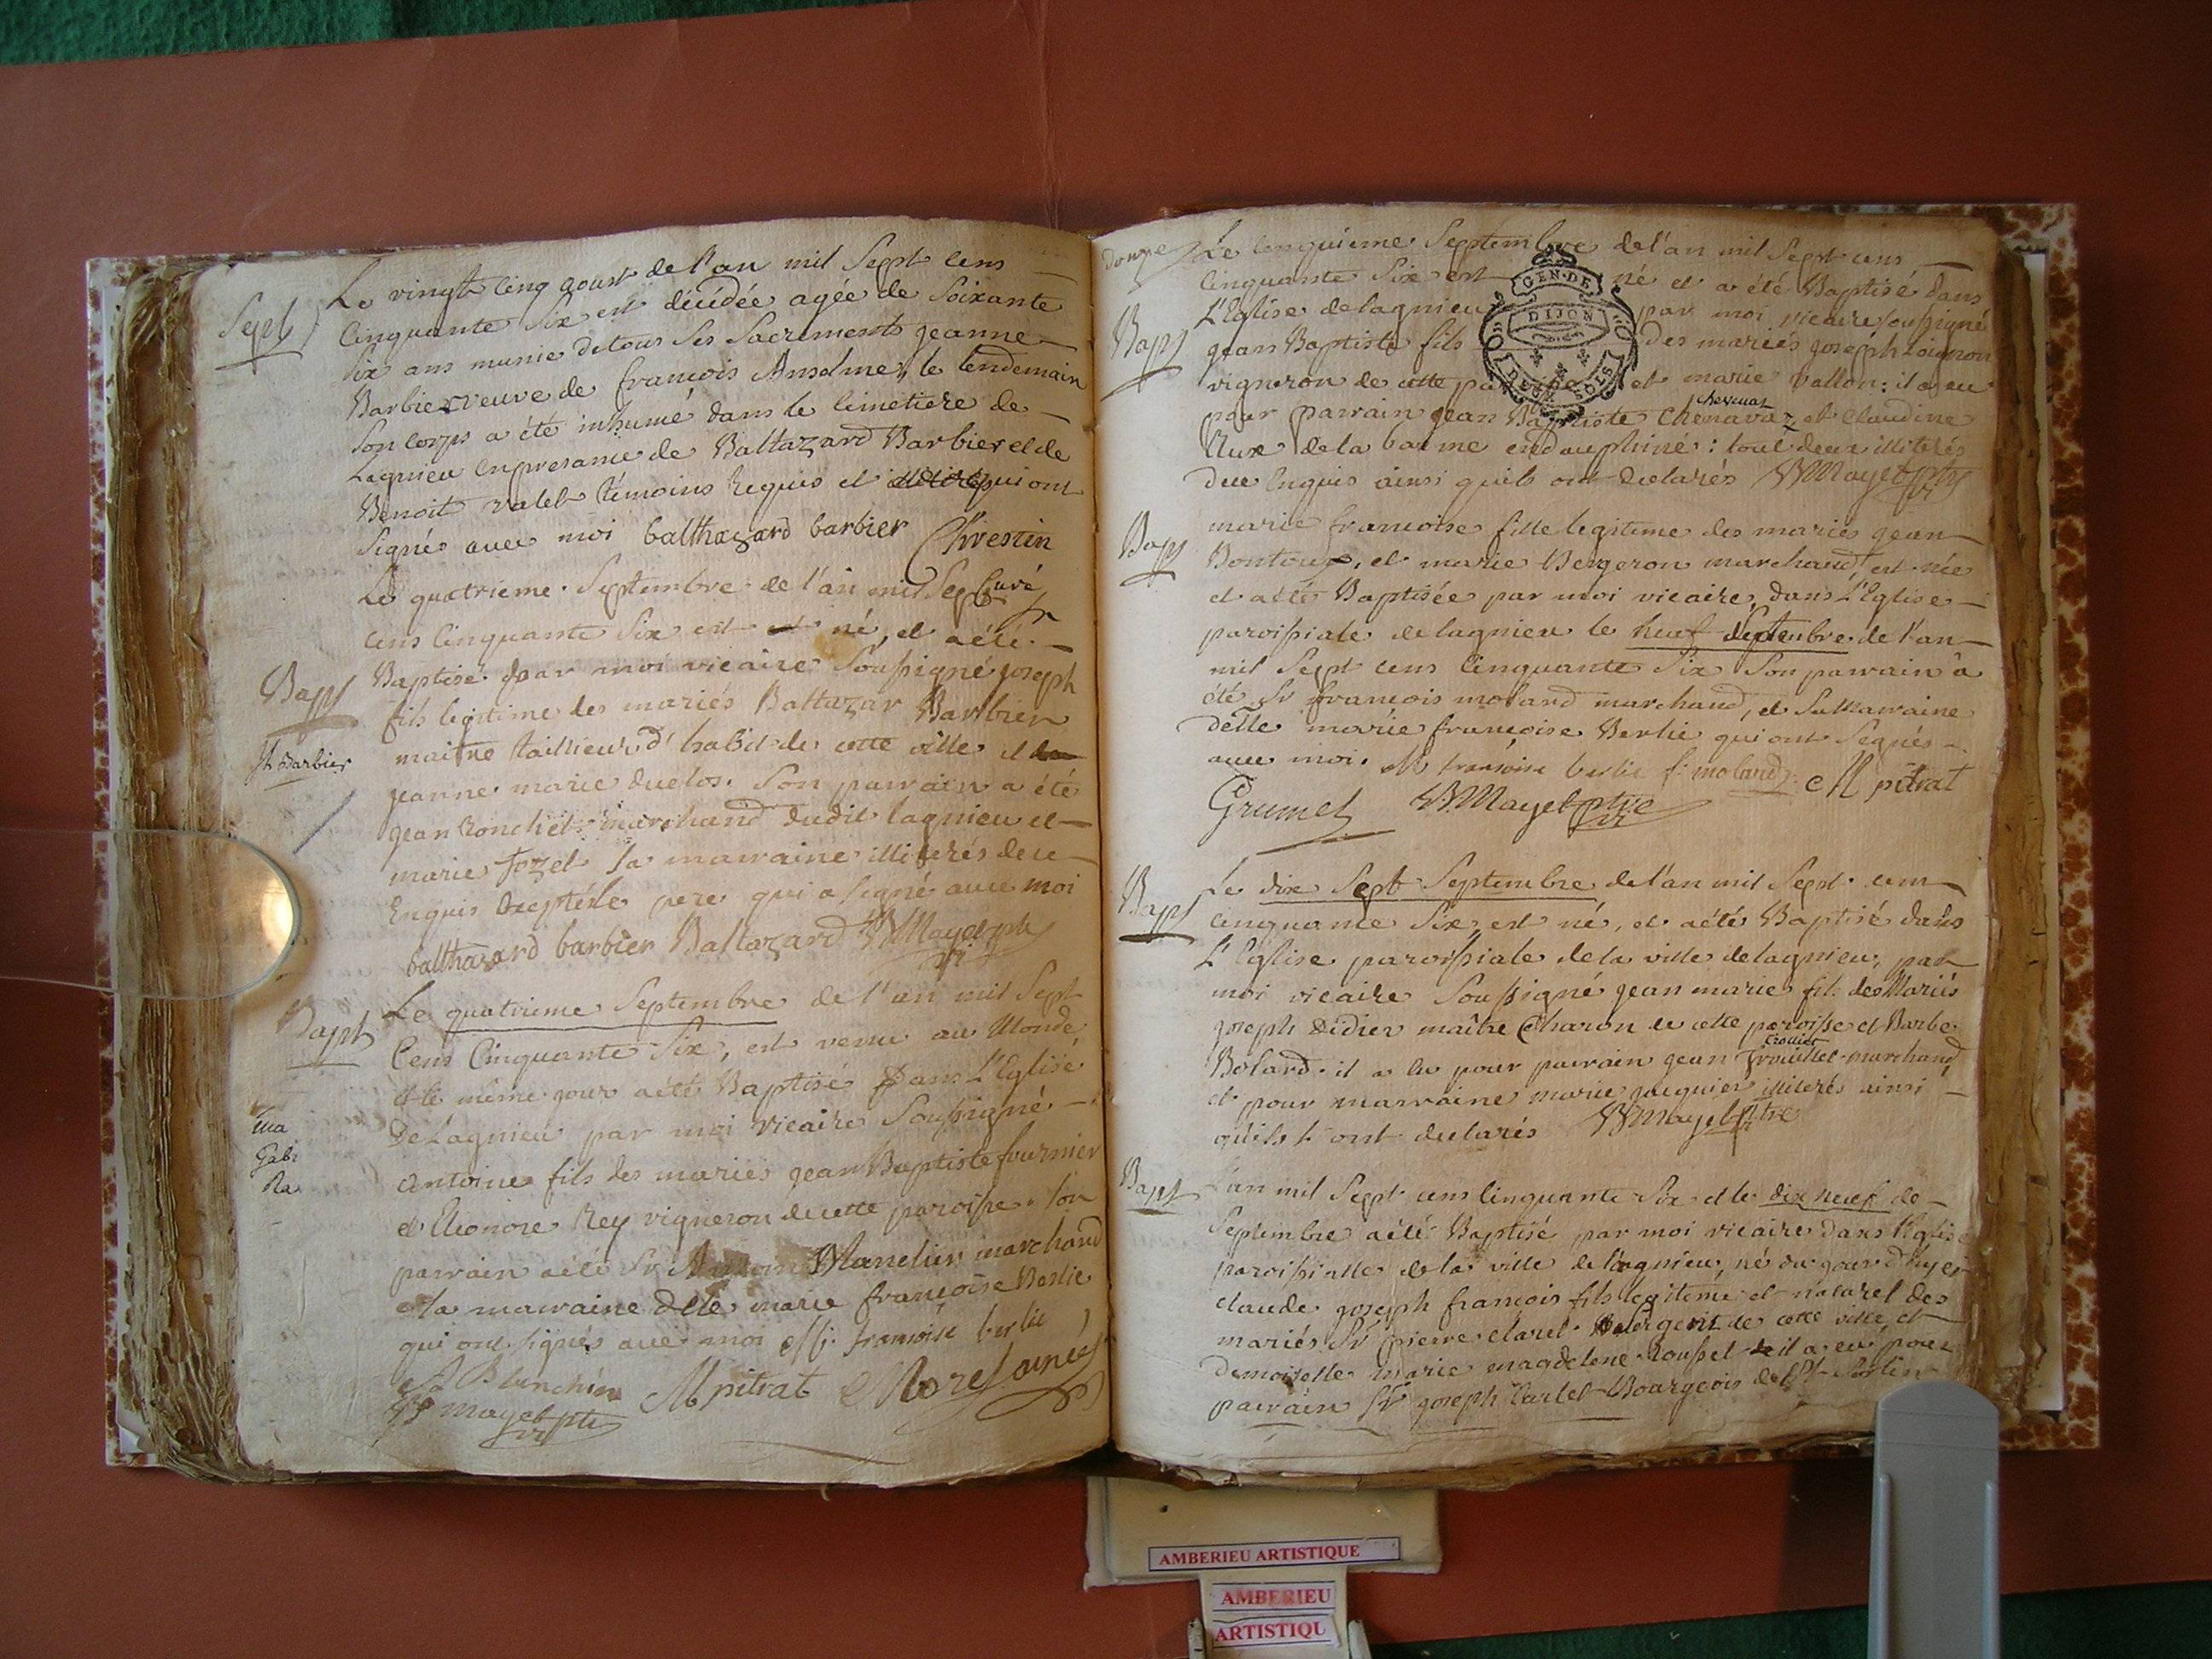 Sept
Le vingt cinq aoust de l'an mil Sept cens
Cinquante Six est décédée agée de Soixante
Six ans munie de tous Ses Sacrements jeanne
Barbier veuve de francois Anselme, le lendemain
Son corps a été inhumé dans le Cimetiere de
Lagnieu en presance de Baltazard Barbier et de
Benoit valet témoins Requis et qui ont
Signés avec moi balthazard barbier
Curé
Le quatrieme Septembre de l'an mil Sept
cens Cinquante Six est né, et a été
Bapt
Baptisé par moi vicaire Soussigné joseph
fils legitime des mariés Baltazar Barbier
Jh Barbier
maitre tailleur d'habit de cette ville et
jeanne marie duclos. Son parrain a été
jean Ronchet marchand dudit lagnieu et
marie Fozet Sa marraine illiterés de ce
Enquis Excepté le pere qui a Signé avec moi
balthazard barbier Baltazard Mayet ptre
Bapt
Le quatrieme Septembre de l'an mil Sept
Cens Cinquante Six, est venu au Monde
et le même jour a été Baptisé Dans L'Eglise
De Lagnieu par moi vicaire Soussigné
Gabr
Antoine fils des mariés jean Baptiste fournier
et Eleonore Rey vigneron de cette paroisse. Son
parrain a été Sr Antoine marchand
et la marraine Delle marie françoise Berlie
qui ont Signés avec moi françoise berlie
Blanchin M pitrat
Mayet ptre
douze
Le Cinquieme Septembre de l'an mil Sept cens
Cinquante Six est né et a été Baptisé dans
L'Eglise de lagnieu par moi vicaire Soussigné
GEN. DE
DIJON
DEUX SOLS
Bapt
jean Baptiste fils des mariés joseph Loignon
vigneron de cette paroisse et marie vallon: il a eu
chevenas
pour parrain jean Baptiste Chenavaz, et Claudine
Aux de la balme en dauphiné: tout deux illiterés
de ce Enquis ainsi qu'ils ont declarés Mayet ptre
Bapt
marie francoise fille legitime des mariés jean
Bontoux, et marie Bergeron marchand, est née
et a été Baptisée par moi vicaire, dans L'Eglise
paroissiale de lagnieu le neuf Septembre de l'an
mil Sept cens Cinquante Six Son parrain a
été Sr francois molard marchand, et Sa Marraine
delle marie françoise Berlie qui ont Signés
avec moi. M francoise berlie f. molard M pitrat
Grumet Mayet ptre
Bapt
Le dix Sept Septembre de l'an mil Sept cens
Cinquante Six, est né, et a été Baptisé dans
L'Eglise paroissiale de la ville de lagnieu, par
moi vicaire Soussigné jean marie fils des Mariés
joseph Didier maître Charon de cette paroisse et Barbe
Trolliet
Bolard. il a Eu pour parrain jean Trouillet marchand,
et pour marraine marie jaquier illiterés ainsi
qu'ils l'ont declarés Mayet ptre
Bapt
L'an mil Sept cens Cinquante Six et le dix neuf de
Septembre a été Baptisé par moi vicaire dans l'Eglise
paroissialle de la ville de lagnieu, né du jour d'hyer
claude joseph francois fils legitime et naturel des
mariés Sr pierre claret Bourgeois de cette ville, et
Demoiselle marie magdelene Roussel il a eu pour
parrain Sr joseph Carlet Bourgeois de St Sorlin
AMBERIEU ARTISTIQUE
AMBERIEU
ARTISTIQU